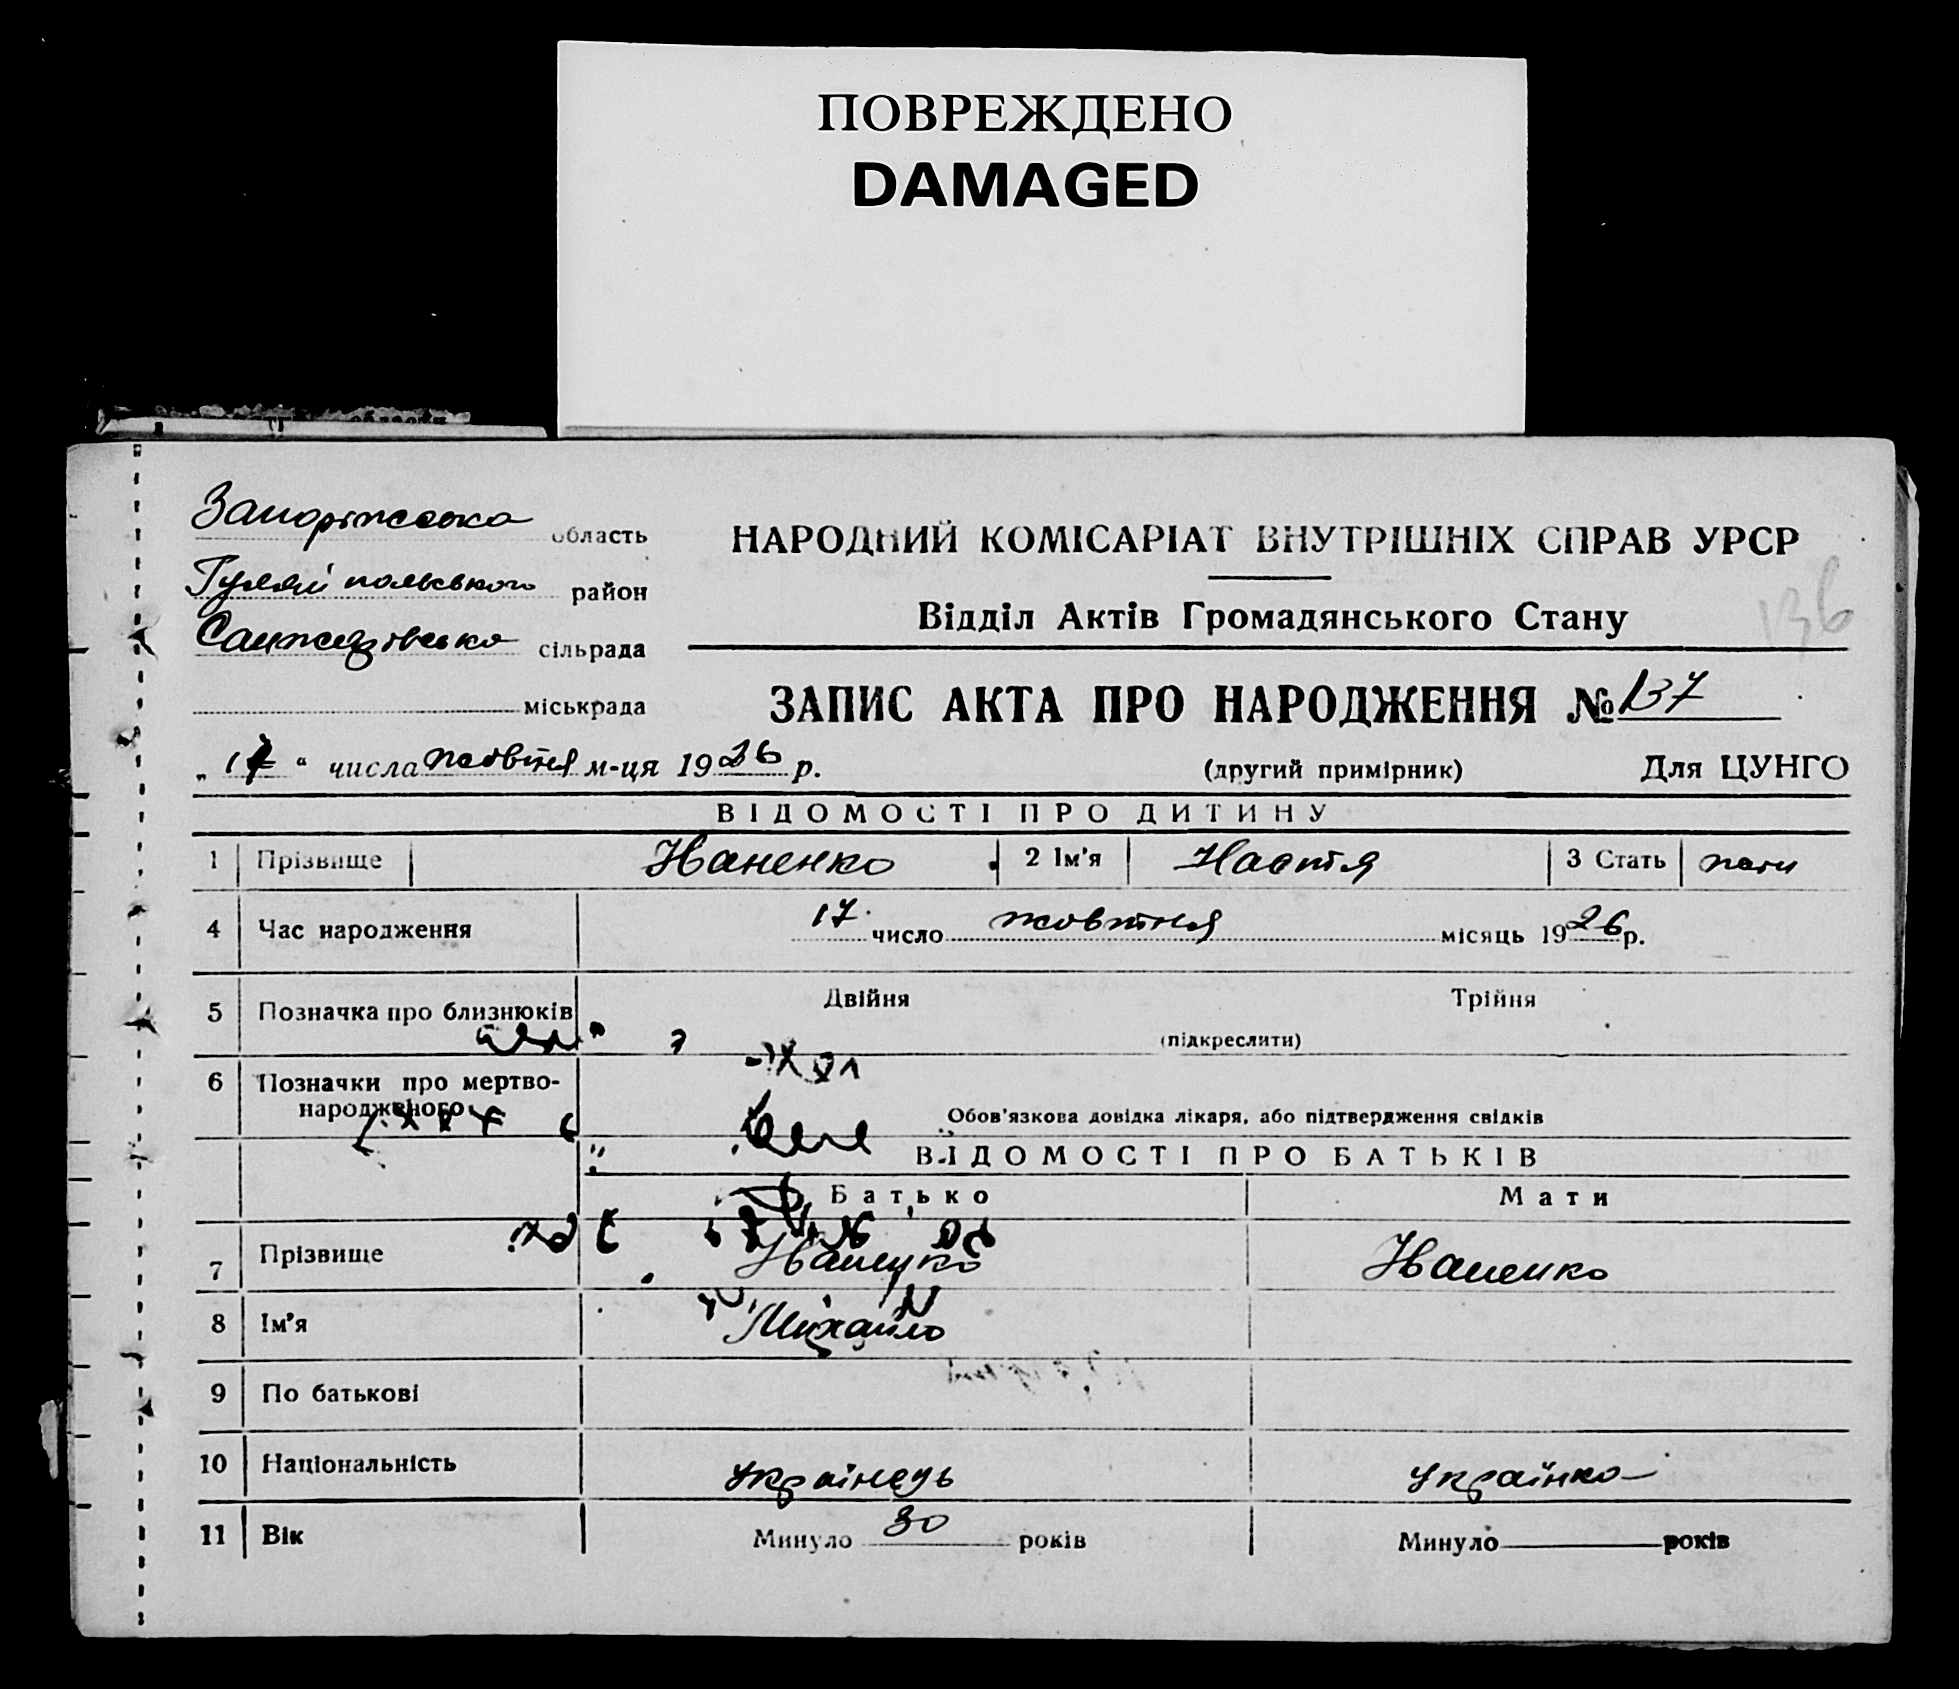 ПОВРЕЖДЕНО
DAMAGED
Запоріжська область
Гуляй польського район
Санжарівська сільрада
міськрада
НАРОДНИЙ КОМІСАРІАТ ВНУТРІШНІХ СПРАВ УРСР
Відділ Актів Громадянського Стану
136
ЗАПИС АКТА ПРО НАРОДЖЕННЯ № 137
„17“ числа жовтня м-ця 1926 р.
(другий примірник) Для ЦУНГО
ВІДОМОСТІ ПРО ДИТИНУ
1 Прізвище Іваненко 2 Ім’я Настя 3 Стать
4 Час народження 17 число жовтня місяць 1926 р.
5 Позначка про близнюків Двійня Трійня
(підкреслити)
6 Позначки про мертво-
народженого Обов’язкова довідка лікаря, або підтвердження свідків
ВІДОМОСТІ ПРО БАТЬКІВ
Батько Мати
7 Прізвище Іваненко Іваненко
8 Ім’я Михайло
9 По батькові
10 Національність Українець Українка
11 Вік Минуло 30 років Минуло років